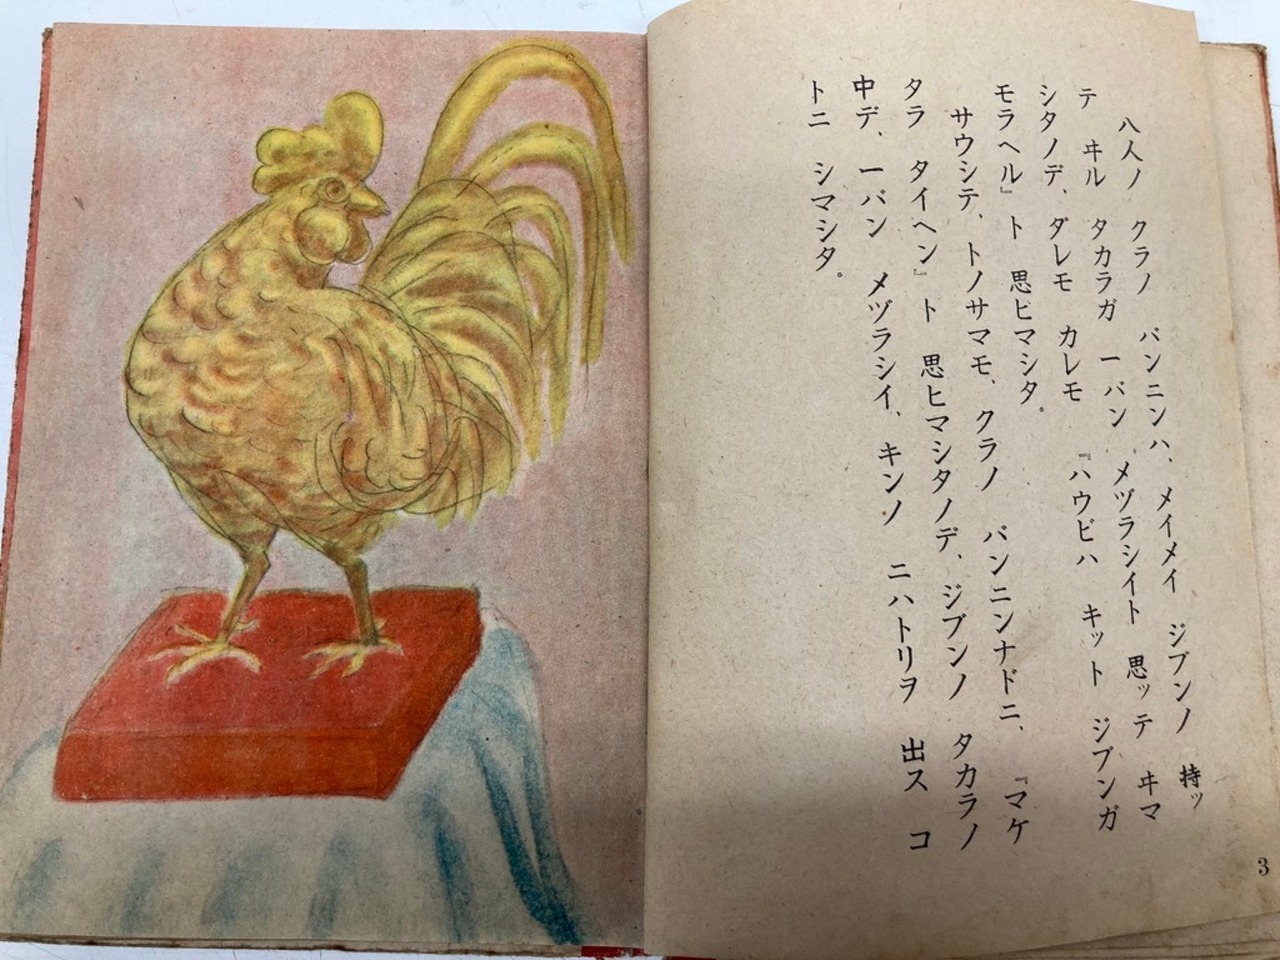 八人ノ クラノ バンニンハ、メイメイ ジブンノ 持ッ
テ ヰル タカラガ 一バン メヅラシイト 思ッテ ヰマ
シタノデ、ダレモ カレモ 『ハウビハ キット ジブンガ
モラヘル』ト 思ヒマシタ。
サウシテ、トノサマモ、クラノ バンニンナドニ、『マケ
タラ タイヘン』ト 思ヒマシタノデ、ジブンノ タカラノ
中デ、一バン メヅラシイ、キンノ ニハトリヲ 出ス コ
トニ シマシタ。
3